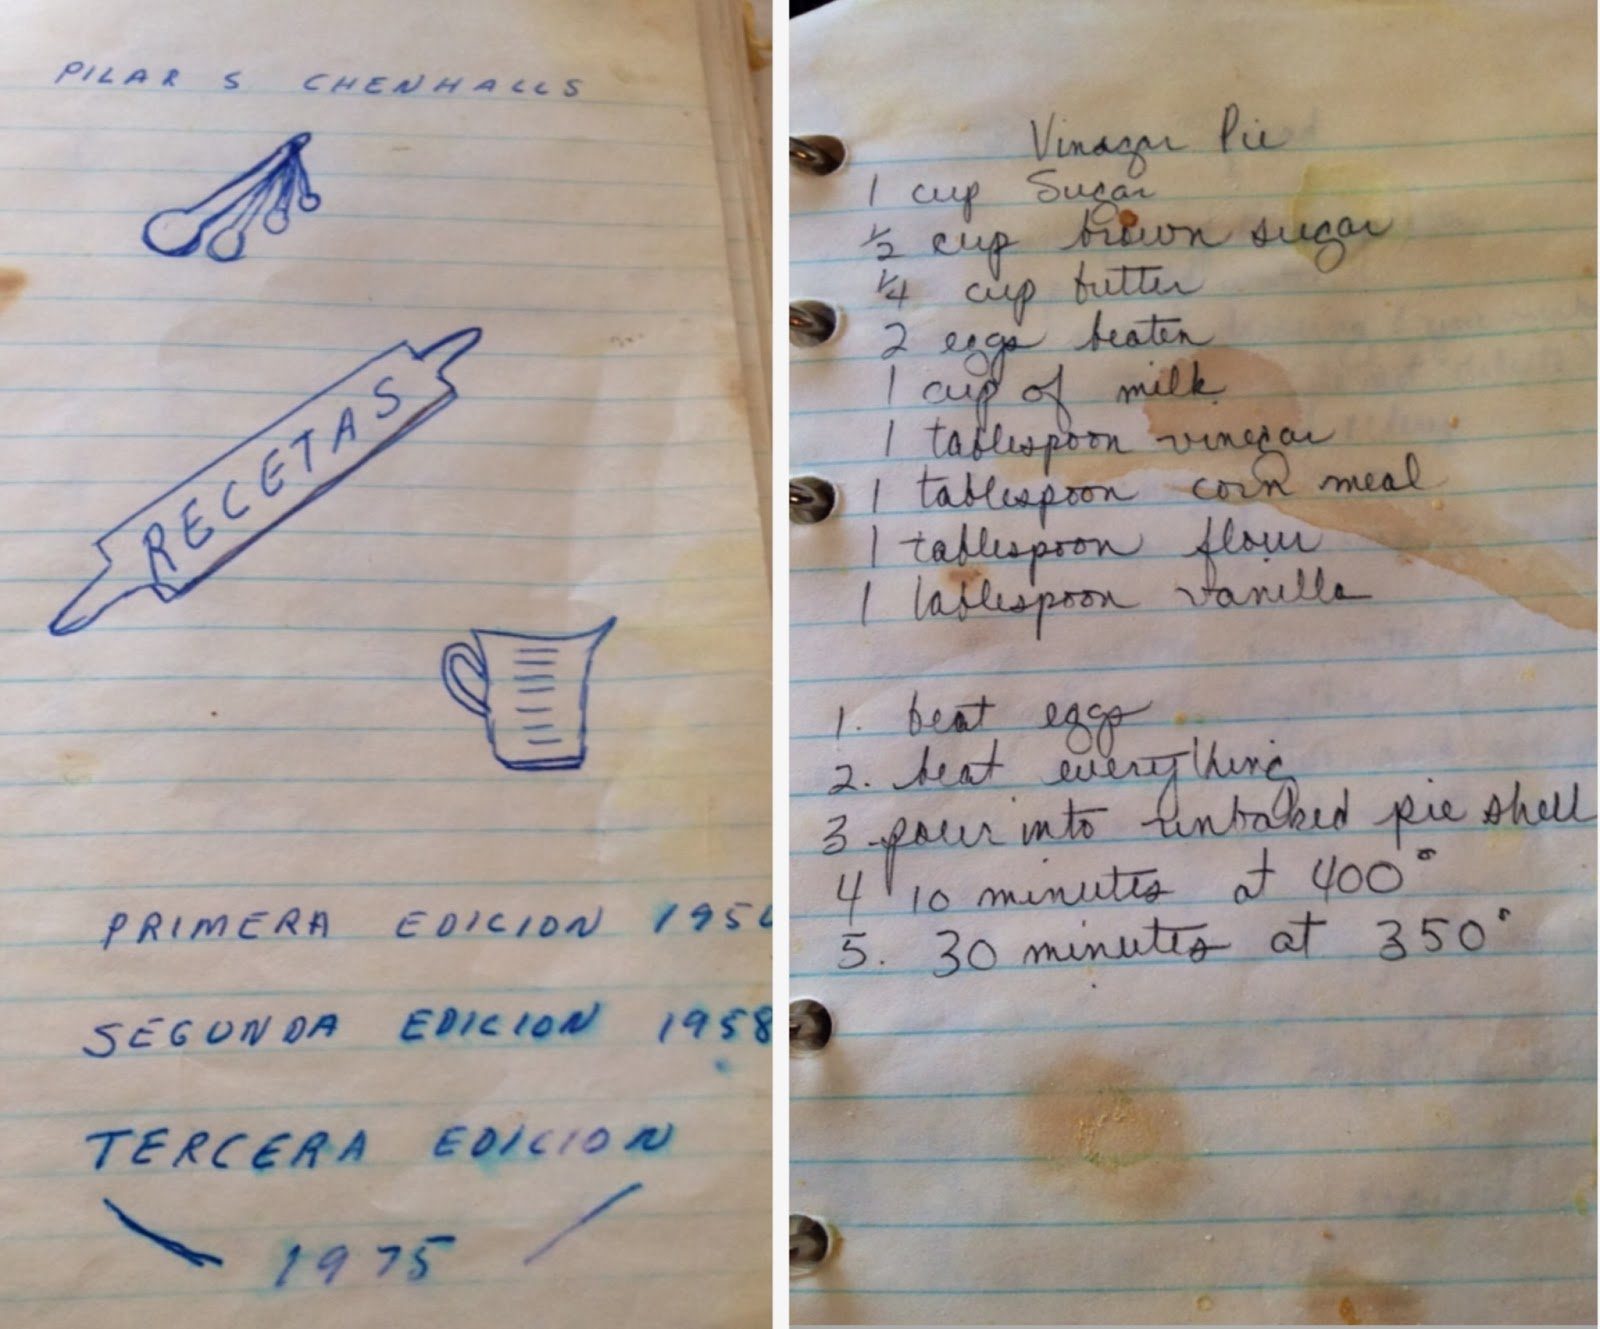 PILAR S CHENHALLS
RECETAS
PRIMERA EDICION 195
SEGUNDA EDICION 1958
TERCERA EDICION
1975
Vinagar Pie
1 cup Sugar
1/2 cup brown sugar
1/4 cup butter
2 eggs beaten
1 cup of milk
1 tablespoon vinegar
1 tablespoon corn meal
1 tablespoon flour
1 tablespoon vanilla
1. beat eggs
2. beat everything
3 pour into unbaked pie shell
4 10 minutes at 400°
5. 30 minutes at 350°